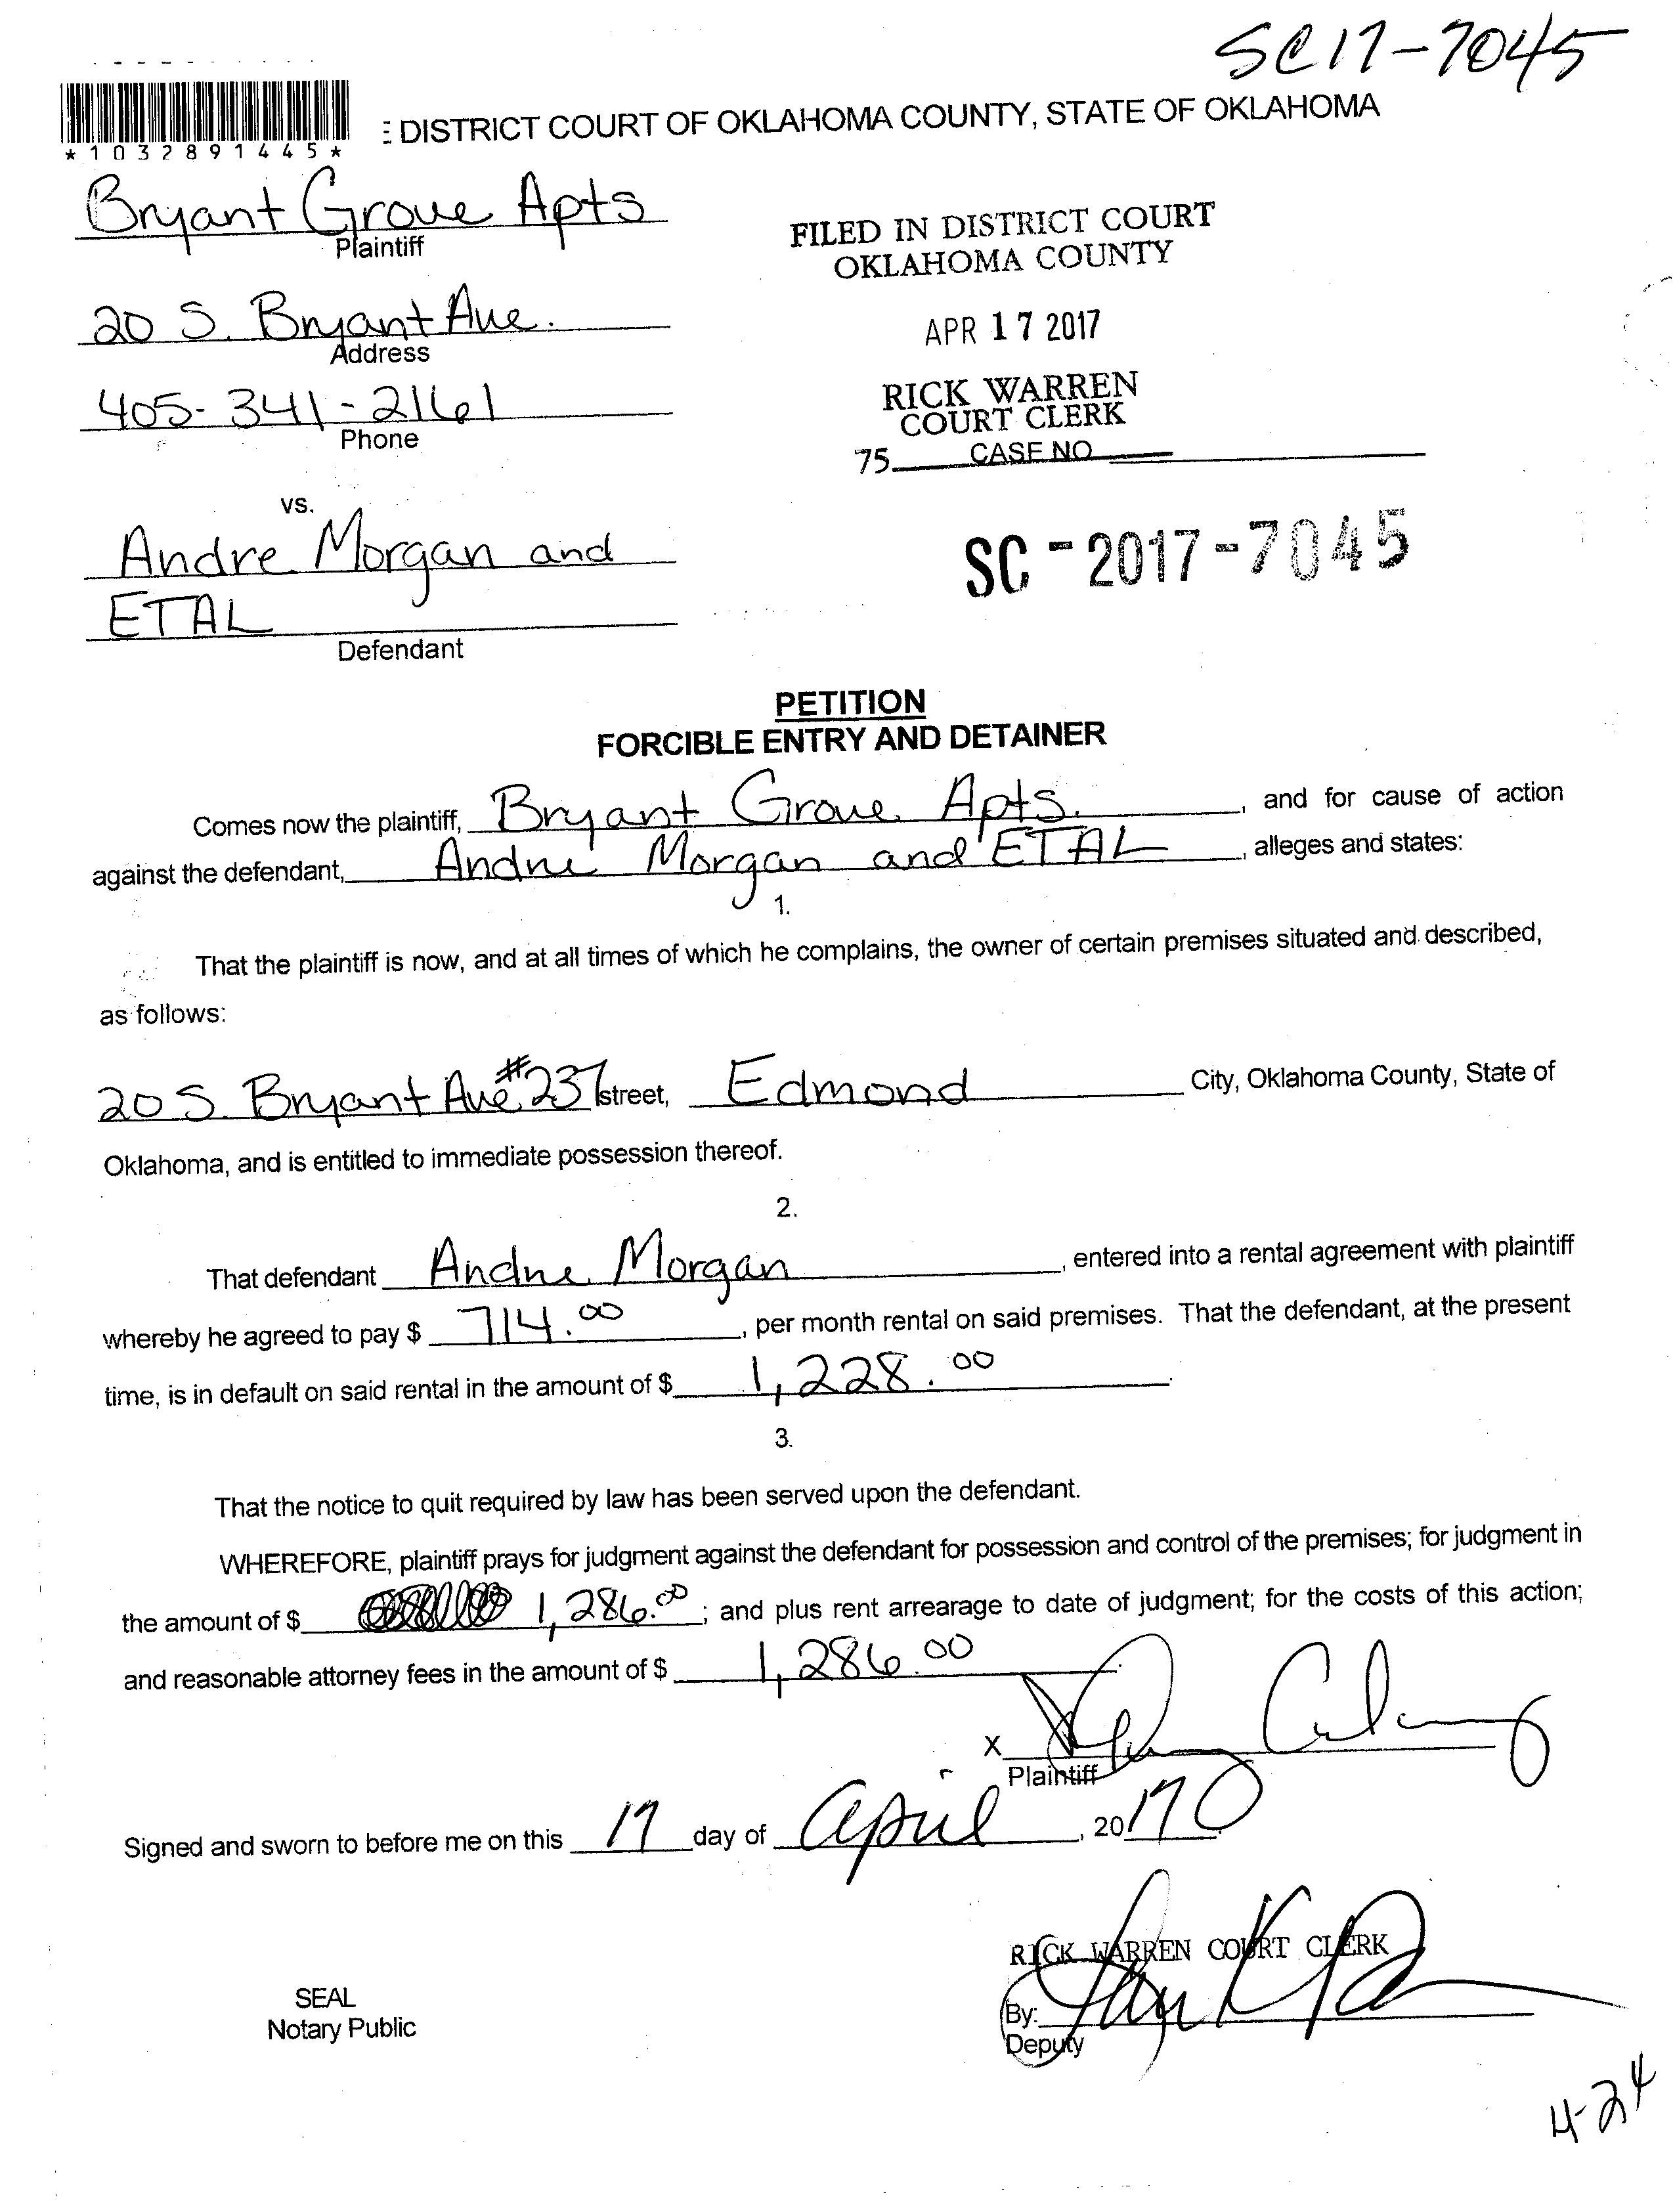 SC17-7045
DISTRICT COURT OF OKLAHOMA COUNTY, STATE OF OKLAHOMA
*1032891445*
Bryant Grove Apts
Plaintiff
FILED IN DISTRICT COURT
OKLAHOMA COUNTY
20 S. Bryant Ave.
Address
APR 17 2017
405-341-2161
Phone
RICK WARREN
COURT CLERK
75 CASE NO
vs.
Andre Morgan and
ETAL
Defendant
SC-2017-7045
PETITION
FORCIBLE ENTRY AND DETAINER
Comes now the plaintiff, Bryant Grove Apts. , and for cause of action
against the defendant, Andre Morgan and ETAL , alleges and states:
1.
That the plaintiff is now, and at all times of which he complains, the owner of certain premises situated and described,
as follows:
20 S. Bryant Ave. #237 street, Edmond City, Oklahoma County, State of
Oklahoma, and is entitled to immediate possession thereof.
2.
That defendant Andre Morgan , entered into a rental agreement with plaintiff
whereby he agreed to pay $ 714.00 , per month rental on said premises. That the defendant, at the present
time, is in default on said rental in the amount of $ 1,228.00 .
3.
That the notice to quit required by law has been served upon the defendant.
WHEREFORE, plaintiff prays for judgment against the defendant for possession and control of the premises; for judgment in
the amount of $ 1,286.00 ; and plus rent arrearage to date of judgment; for the costs of this action;
and reasonable attorney fees in the amount of $ 1,286.00 .
X
Plaintiff
Signed and sworn to before me on this 17 day of April , 2017
RICK WARREN COURT CLERK
SEAL
Notary Public
By:
Deputy
4-24